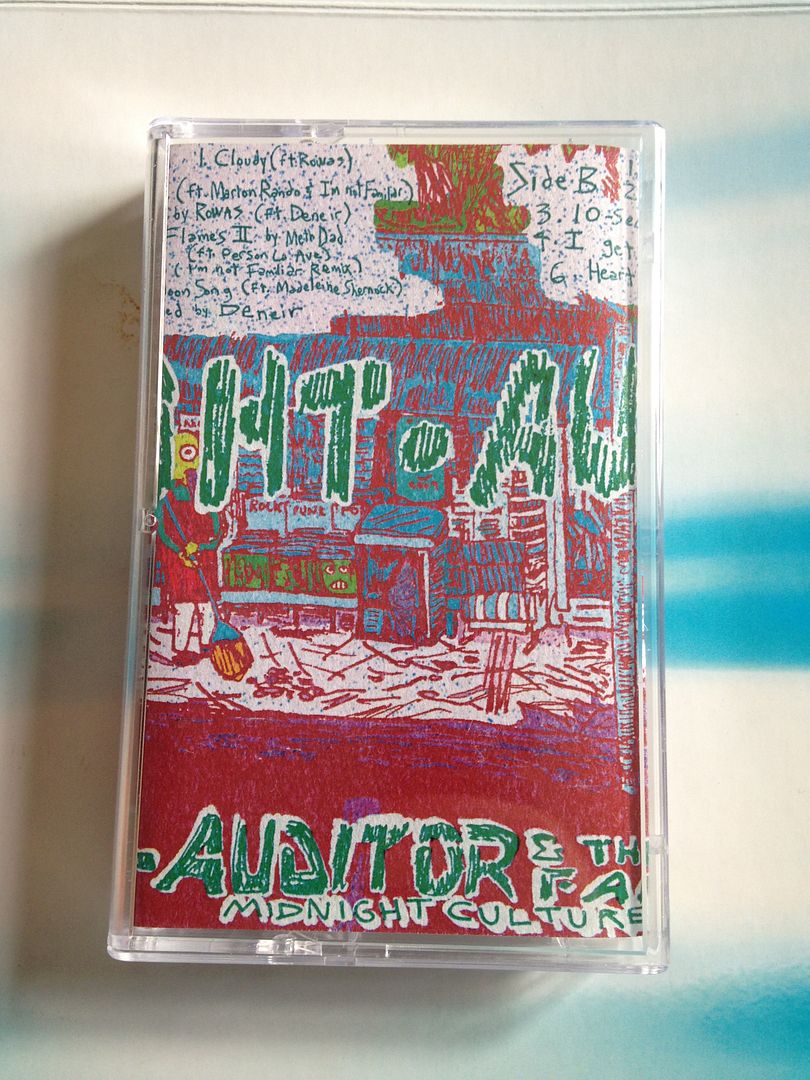 1. Cloudy (ft. Rowas)
(ft. Marton Rando & Im not Familiar)
by ROWAS (ft. Deneir)
Flames II by Meth Dad
(ft Person Lo Ave)
(I'm not Familiar Remix)
eon Song (ft. Madeleine Shernock)
ed by Deneir
Side B
3. 10-Sec
4. I get
6 Heart
1.
2
HT AU
ROCK PUNK PO
AUDITOR & TH
FA
MDNIGHT CULTURE